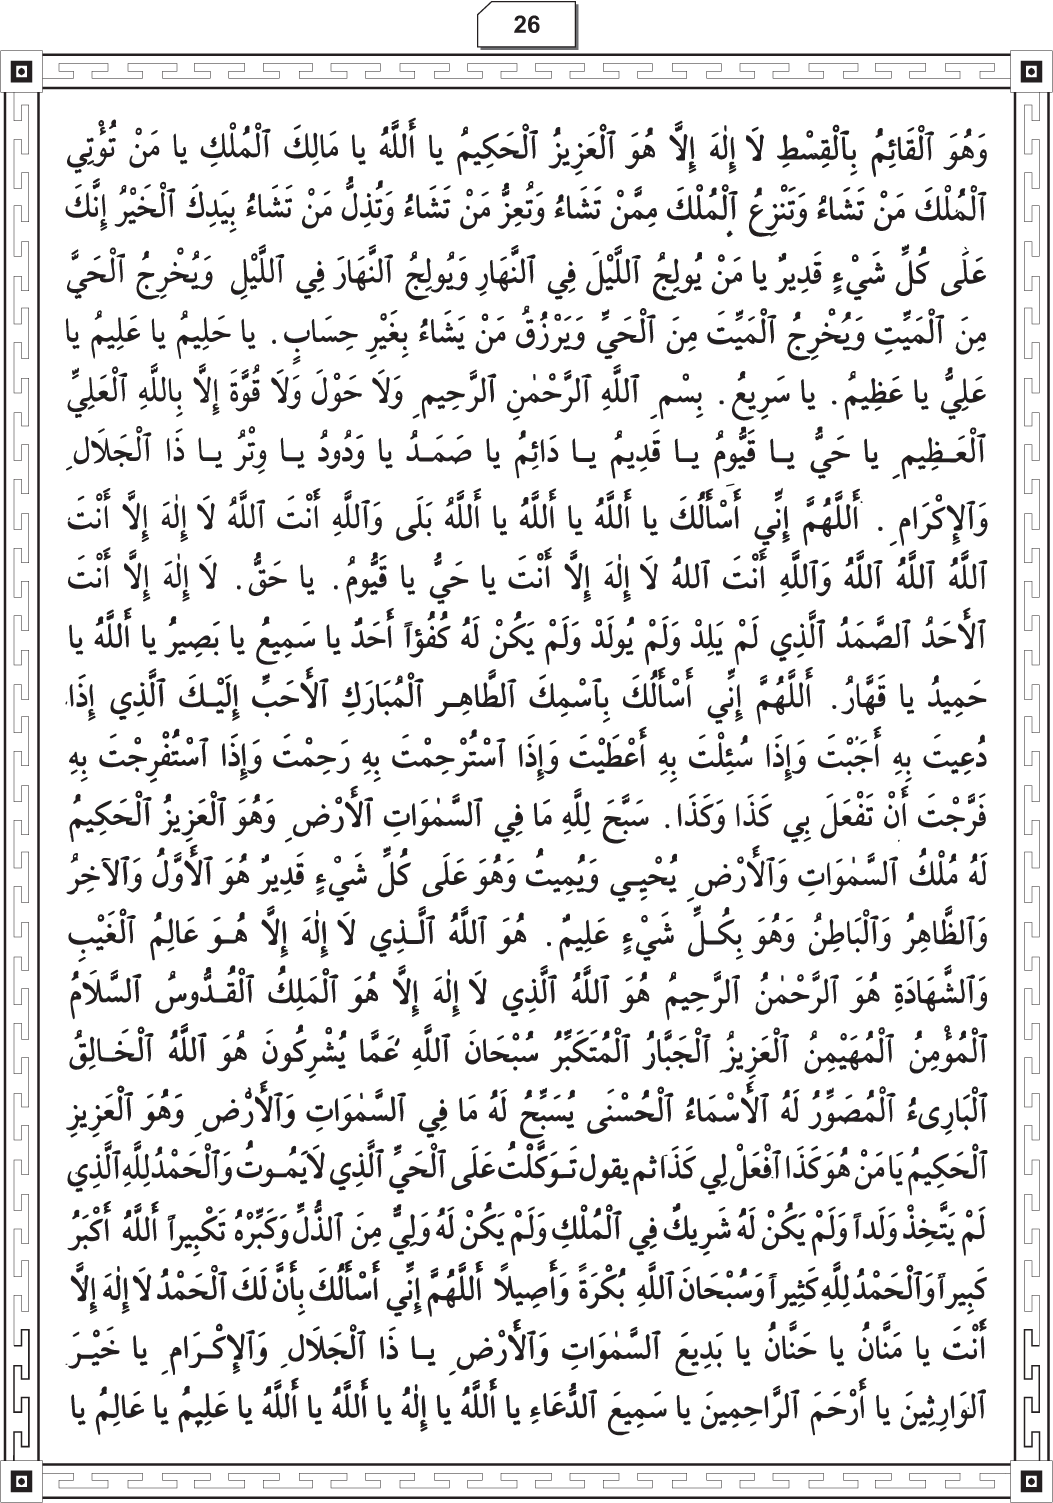 26
وَهُوَ ٱلْقَائِمُ بِٱلْقِسْطِ لَا إِلٰهَ إِلَّا هُوَ ٱلْعَزِيزُ ٱلْحَكِيمُ يا أَللَّهُ يا مَالِكَ ٱلْمُلْكِ يا مَنْ تُؤْتِي
ٱلْمُلْكَ مَنْ تَشَاءُ وَتَنْزِعُ ٱلْمُلْكَ مِمَّنْ تَشَاءُ وَتُعِزُّ مَنْ تَشَاءُ وَتُذِلُّ مَنْ تَشَاءُ بِيَدِكَ ٱلْخَيْرُ إِنَّكَ
عَلَى كُلِّ شَيْءٍ قَدِيرٌ يا مَنْ يُولِجُ اللَّيْلَ فِي ٱلنَّهَارِ وَيُولِجُ ٱلنَّهَارَ فِي ٱللَّيْلِ وَيُخْرِجُ ٱلْحَيَّ
مِنَ ٱلْمَيِّتِ وَيُخْرِجُ ٱلْمَيِّتَ مِنَ ٱلْحَيِّ وَيَرْزُقُ مَنْ يَشَاءُ بِغَيْرِ حِسَابٍ. يا حَلِيمُ يا عَلِيمُ يا
عَلِيُّ يا عَظِيمُ. يا سَرِيعُ. بِسْمِ ٱللَّهِ ٱلرَّحْمٰنِ ٱلرَّحِيمِ وَلَا حَوْلَ وَلَا قُوَّةَ إِلَّا بِاللَّهِ ٱلْعَلِيِّ
ٱلْعَـظِيمِ يا حَيُّ يـا قَيُّومُ يـا قَدِيمُ يـا دَائِمُ يا صَمَـدُ يا وَدُودُ يـا وِتْرُ يـا ذَا ٱلْجَلَالِ
وَٱلإِكْرَامِ . أَللَّهُمَّ إِنِّي أَسْأَلُكَ يا أَللَّهُ يا أَللَّهُ يا أَللَّهُ بَلَى وَٱللَّهِ أَنْتَ ٱللَّهُ لَا إِلٰهَ إِلَّا أَنْتَ
ٱللَّهُ ٱللَّهُ ٱللَّهُ وَٱللَّهِ أَنْتَ اللهُ لَا إِلٰهَ إِلَّا أَنْتَ يا حَيُّ يا قَيُّومُ. يا حَقُّ. لَا إِلٰهَ إِلَّا أَنْتَ
ٱلأَحَدُ ٱلصَّمَدُ ٱلَّذِي لَمْ يَلِدْ وَلَمْ يُولَدْ وَلَمْ يَكُنْ لَهُ كُفُؤاً أَحَدٌ يا سَمِيعُ يا بَصِيرُ يا أَللَّهُ يا
حَمِيدُ يا قَهَّارُ. أَللَّهُمَّ إِنِّي أَسْأَلُكَ بِٱسْمِكَ ٱلطَّاهِـرِ ٱلْمُبَارَكِ ٱلأَحَبِّ إِلَيْـكَ ٱلَّذِي إِذَا
دُعِيتَ بِهِ أَجَبْتَ وَإِذَا سُئِلْتَ بِهِ أَعْطَيْتَ وَإِذَا ٱسْتُرْحِمْتَ بِهِ رَحِمْتَ وَإِذَا ٱسْتُفْرِجْتَ بِهِ
فَرَّجْتَ أَنْ تَفْعَلَ بِي كَذَا وَكَذَا. سَبَّحَ لِلَّهِ مَا فِي ٱلسَّمٰوَاتِ ٱلأَرْضِ وَهُوَ ٱلْعَزِيزُ ٱلْحَكِيمُ
لَهُ مُلْكُ ٱلسَّمٰوَاتِ وَٱلأَرْضِ يُحْيِـي وَيُمِيتُ وَهُوَ عَلَى كُلِّ شَيْءٍ قَدِيرٌ هُوَ ٱلأَوَّلُ وَٱلآخِرُ
وَٱلظَّاهِرُ وَٱلْبَاطِنُ وَهُوَ بِكُـلِّ شَيْءٍ عَلِيمٌ. هُوَ ٱللَّهُ ٱلَّـذِي لَا إِلٰهَ إِلَّا هُـوَ عَالِمُ ٱلْغَيْبِ
وَٱلشَّهَادَةِ هُوَ ٱلرَّحْمٰنُ ٱلرَّحِيمُ هُوَ ٱللَّهُ ٱلَّذِي لَا إِلٰهَ إِلَّا هُوَ ٱلْمَلِكُ ٱلْقُـدُّوسُ ٱلسَّلَامُ
ٱلْمُؤْمِنُ ٱلْمُهَيْمِنُ ٱلْعَزِيزُ ٱلْجَبَّارُ ٱلْمُتَكَبِّرُ سُبْحَانَ ٱللَّهِ عَمَّا يُشْرِكُونَ هُوَ ٱللَّهُ ٱلْخَـالِقُ
ٱلْبَارِىءُ ٱلْمُصَوِّرُ لَهُ ٱلأَسْمَاءُ ٱلْحُسْنَى يُسَبِّحُ لَهُ مَا فِي ٱلسَّمٰوَاتِ وَٱلأَرْضِ وَهُوَ ٱلْعَزِيزِ
ٱلْحَكِيمُ يَا مَنْ هُوَ كَذَا ٱفْعَلْ لِي كَذَا ثم يقول تَـوَكَّلْتُ عَلَى ٱلْحَيِّ ٱلَّذِي لَا يَمُـوتُ وَٱلْحَمْدُ لِلَّهِ ٱلَّذِي
لَمْ يَتَّخِذْ وَلَداً وَلَمْ يَكُنْ لَهُ شَرِيكٌ فِي ٱلْمُلْكِ وَلَمْ يَكُنْ لَهُ وَلِيٌّ مِنَ ٱلذُّلِّ وَكَبِّرْهُ تَكْبِيراً أَللَّهُ أَكْبَرُ
كَبِيراً وَٱلْحَمْدُ لِلَّهِ كَثِيراً وَسُبْحَانَ ٱللَّهِ بُكْرَةً وَأَصِيلاً أَللَّهُمَّ إِنِّي أَسْأَلُكَ بِأَنَّ لَكَ ٱلْحَمْدُ لَا إِلٰهَ إِلَّا
أَنْتَ يا مَنَّانُ يا حَنَّانُ يا بَدِيعَ ٱلسَّمٰوَاتِ وَٱلأَرْضِ يـا ذَا ٱلْجَلَالِ وَٱلإِكْـرَامِ يا خَيْـرَ
ٱلوَارِثِينَ يا أَرْحَمَ ٱلرَّاحِمِينَ يا سَمِيعَ ٱلدُّعَاءِ يا أَللَّهُ يا إِلٰهُ يا أَللَّهُ يا أَللَّهُ يا عَلِيمُ يا عَالِمُ يا